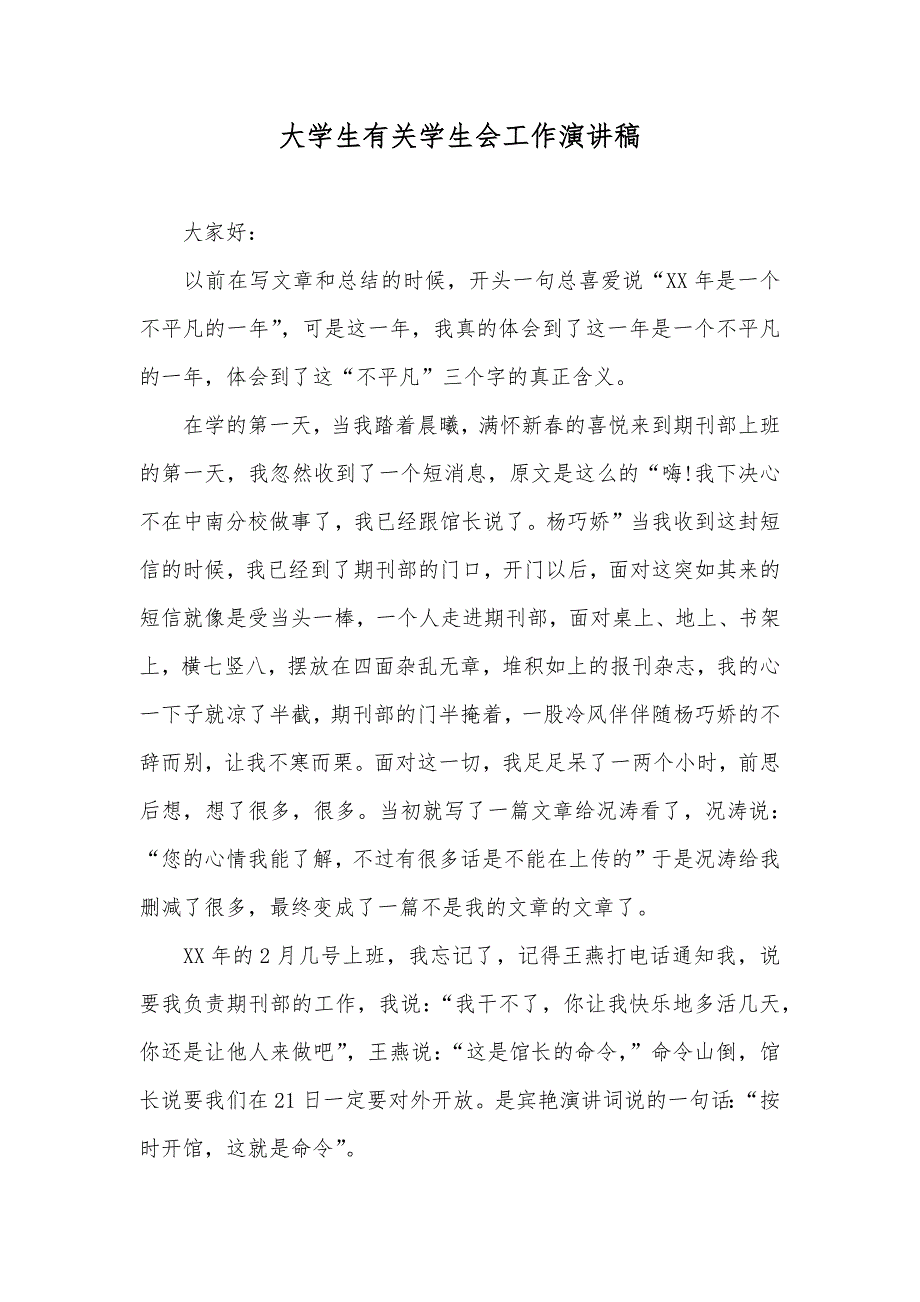 大学生有关学生会工作演讲稿
大家好：
以前在写文章和总结的时候，开头一句总喜爱说“XX 年是一个
不平凡的一年”，可是这一年，我真的体会到了这一年是一个不平凡
的一年，体会到了这“不平凡”三个字的真正含义。
在学的第一天，当我踏着晨曦，满怀新春的喜悦来到期刊部上班
的第一天，我忽然收到了一个短消息，原文是这么的“嗨!我下决心
不在中南分校做事了，我已经跟馆长说了。杨巧娇”当我收到这封短
信的时候，我已经到了期刊部的门口，开门以后，面对这突如其来的
短信就像是受当头一棒，一个人走进期刊部，面对桌上、地上、书架
上，横七竖八，摆放在四面杂乱无章，堆积如上的报刊杂志，我的心
一下子就凉了半截，期刊部的门半掩着，一股冷风伴伴随杨巧娇的不
辞而别，让我不寒而栗。面对这一切，我足足呆了一两个小时，前思
后想，想了很多，很多。当初就写了一篇文章给况涛看了，况涛说：
“您的心情我能了解，不过有很多话是不能在上传的”于是况涛给我
删减了很多，最终变成了一篇不是我的文章的文章了。
XX 年的 2 月几号上班，我忘记了，记得王燕打电话通知我，说
要我负责期刊部的工作，我说：“我干不了，你让我快乐地多活几天，
你还是让他人来做吧”，王燕说：“这是馆长的命令，”命令山倒，馆
长说要我们在 21 日一定要对外开放。是宾艳演讲词说的一句话：“按
时开馆，这就是命令”。